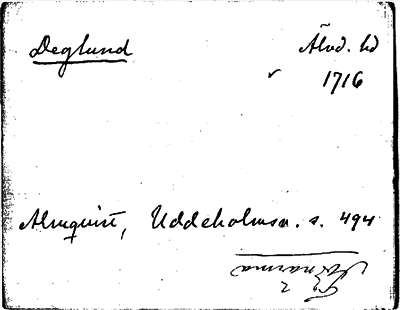 Deglund
Älvd. hd
1716
Almquist, Uddeholmsn. s. 494